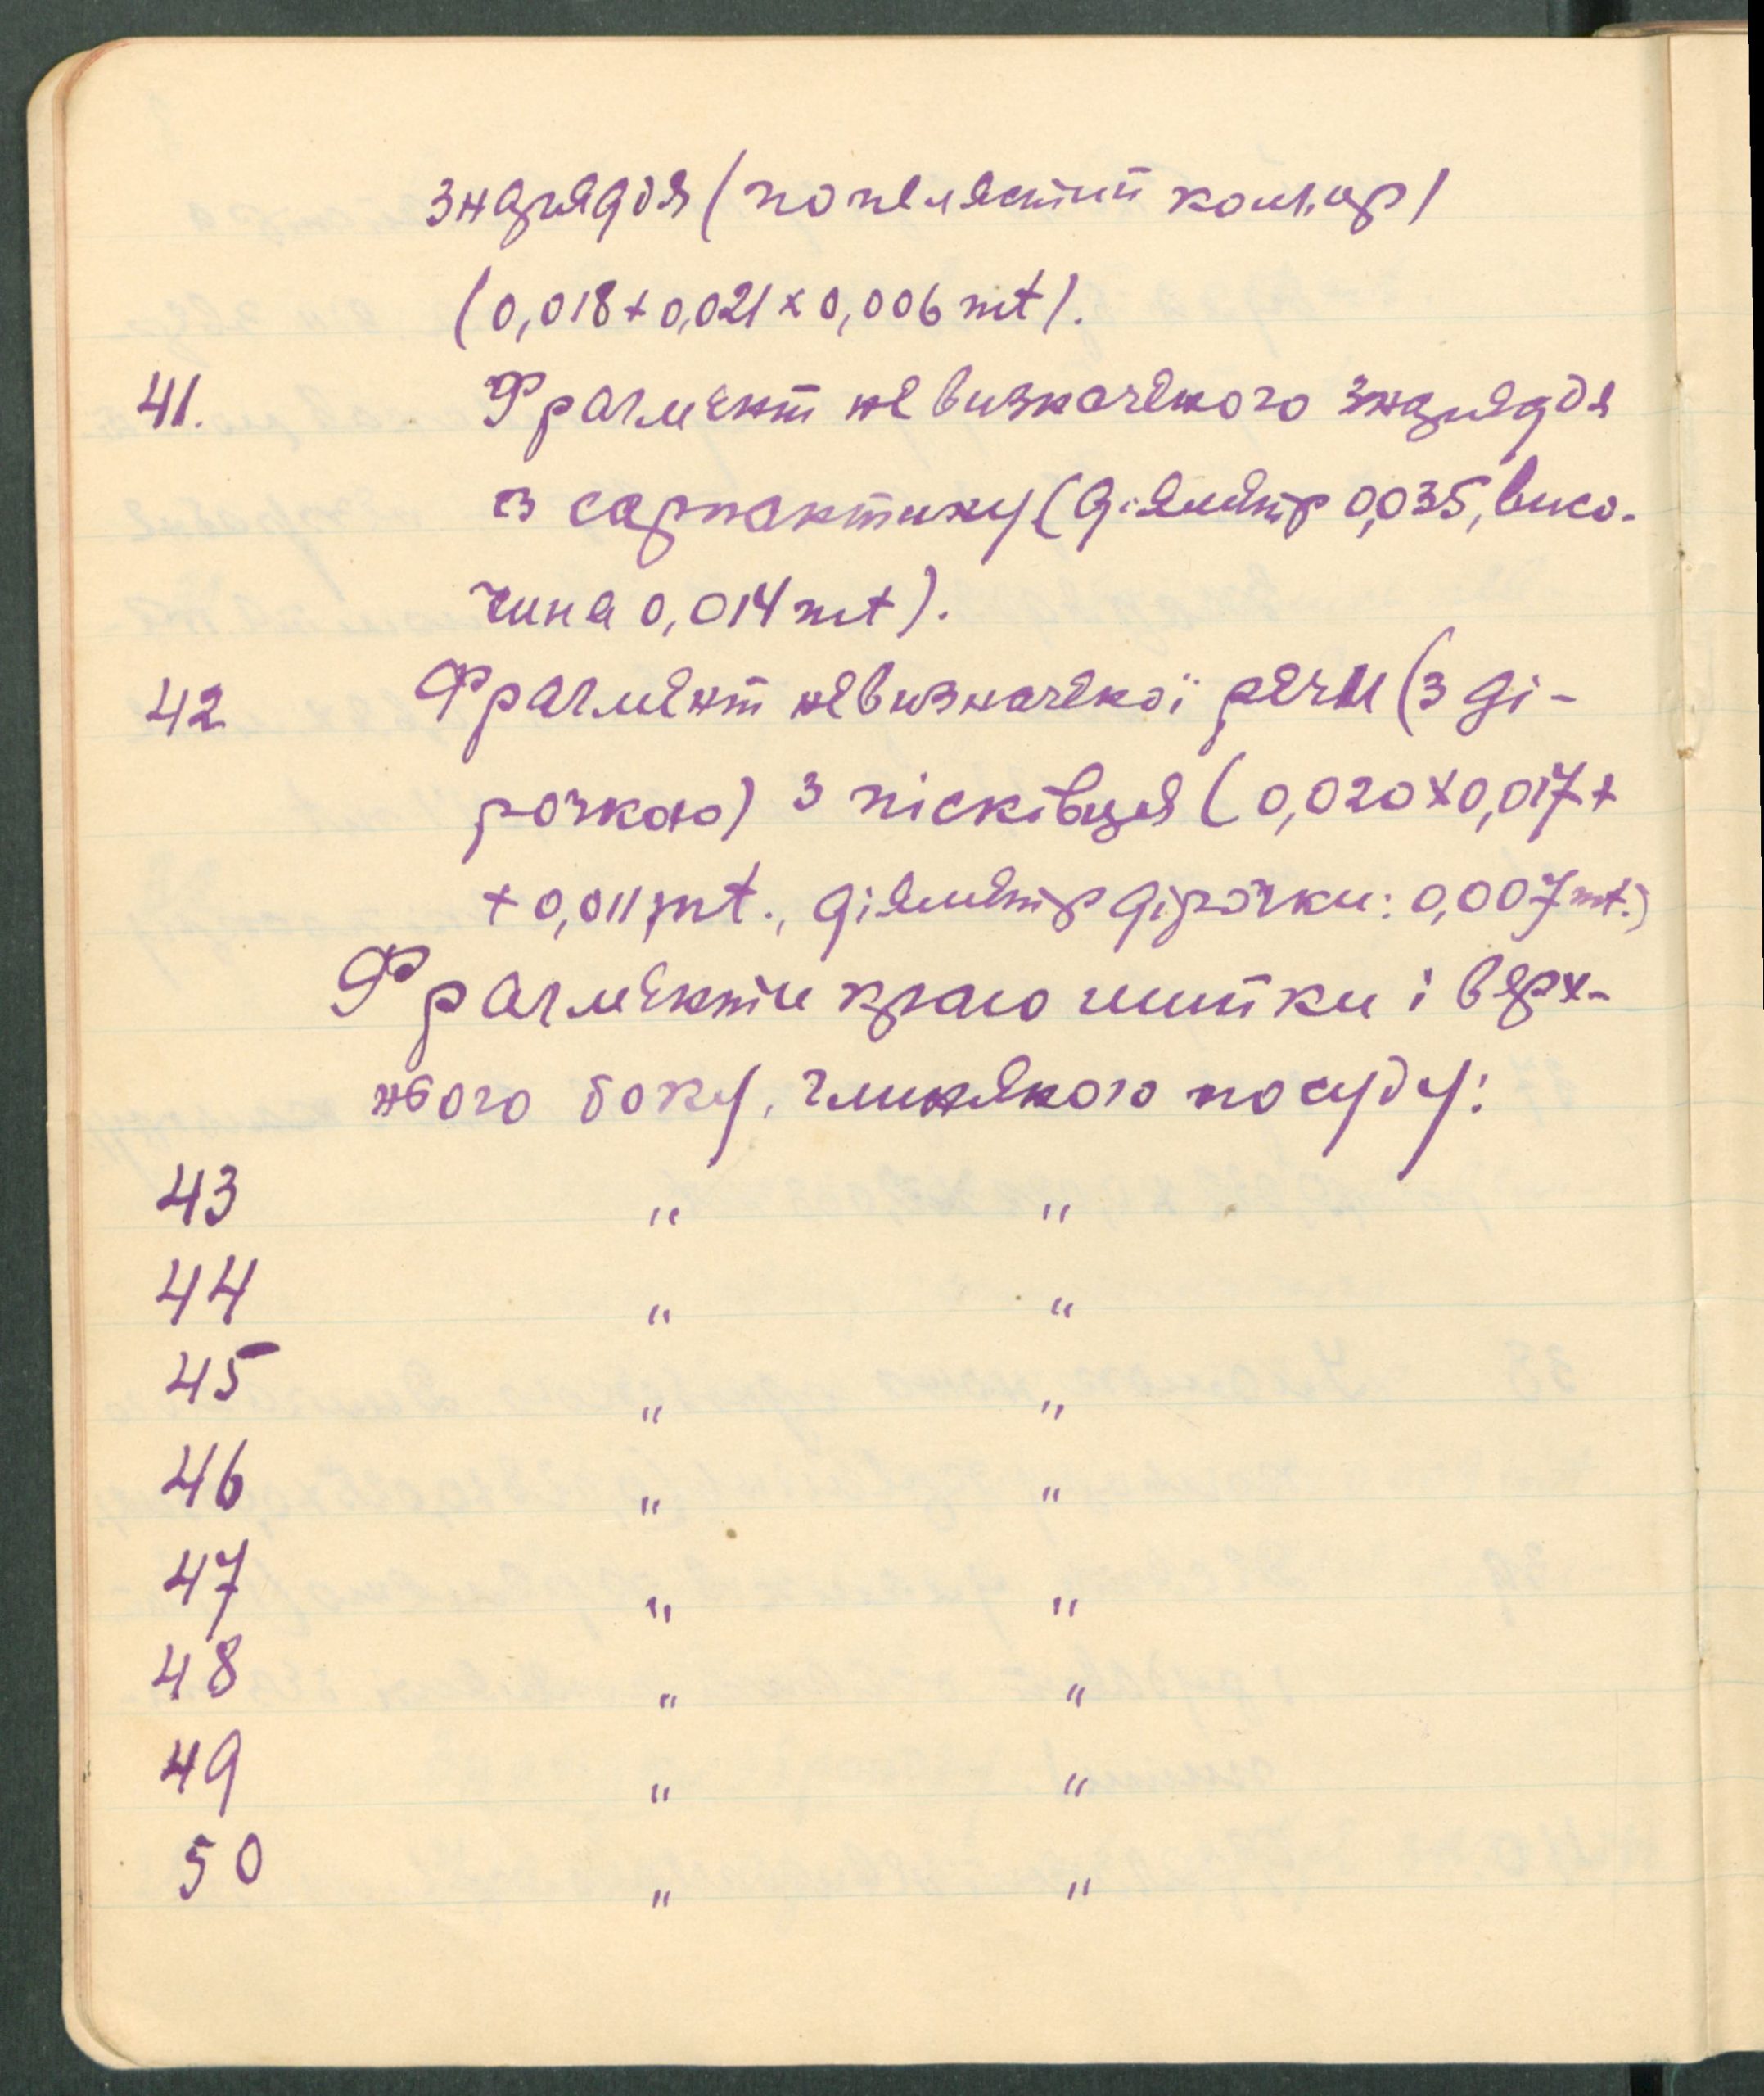 знаряддя (попелястий кольор)
(0,018 + 0,021 x 0,006 mt).
41. Фрагмент невизначеного знаряддя
з серпантину (діяметр 0,035, висо-
чина 0,014 mt).
42 Фрагмент невизначеної речи (з ді-
рочкою) з пісківця (0,020 x 0,017 +
+ 0,011 mt., діяметр дірочки: 0,007 mt.)
Фрагменти краю шийки і верх-
нього боку, глиняного посуду:
43 " "
44 " "
45 " "
46 " "
47 " "
48 " "
49 " "
50 " "